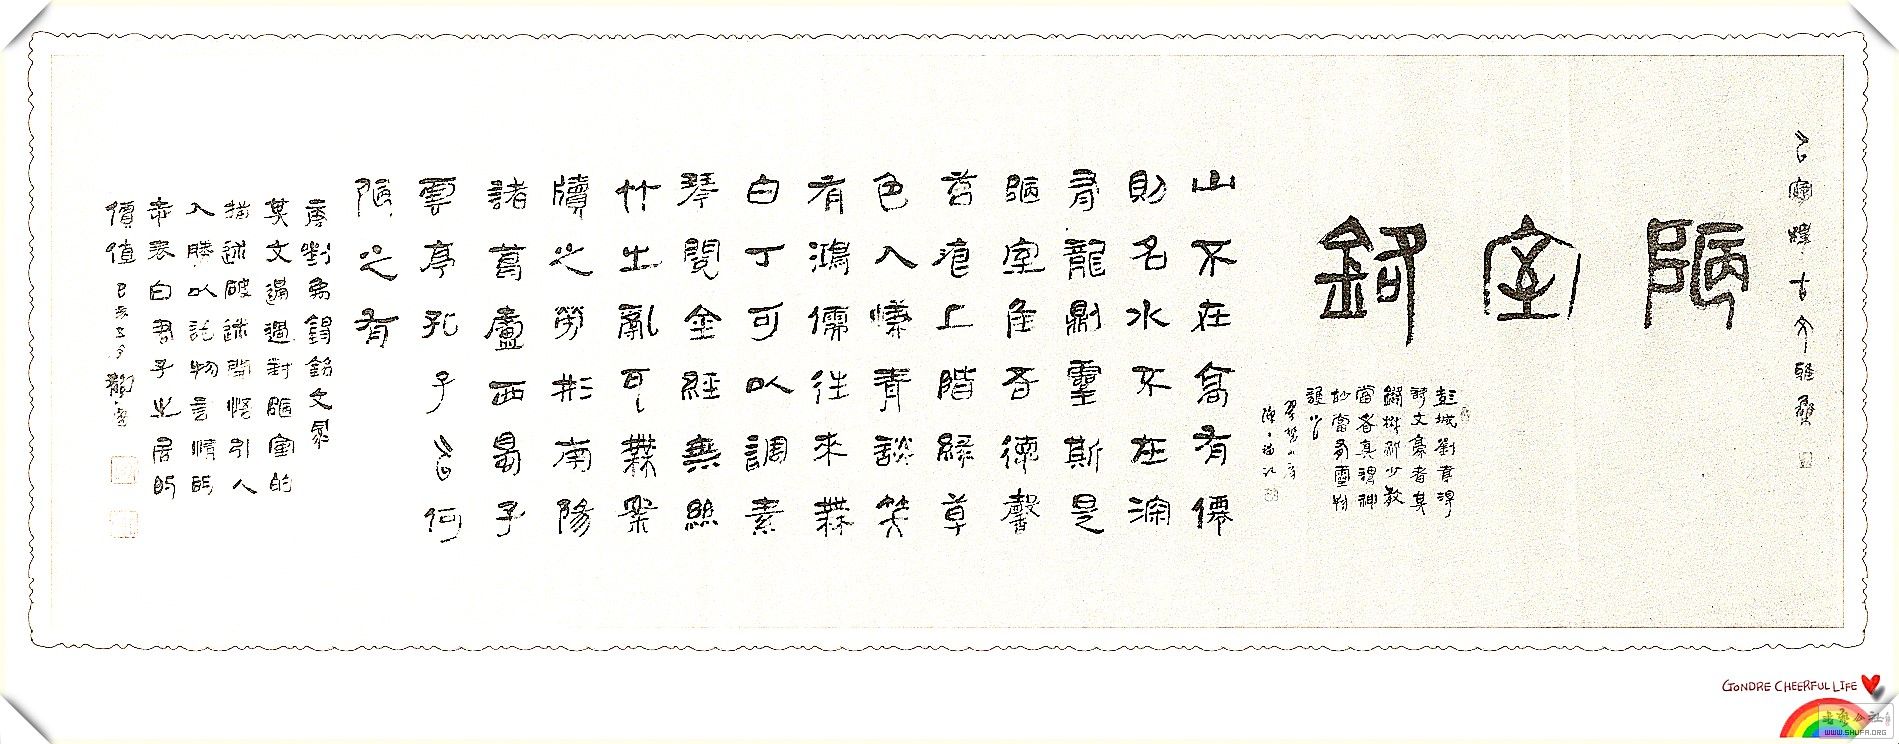 陋室銘
彭城劉
詩文豪者其
山不在高有僊
則名水不在深
有龍則靈斯是
陋室隹吾德馨
苔痕上階緑草
色入簾青談笑
有鴻儒往來無
白丁可以調素
琴閱金經無絲
竹之亂耳無案
牘之勞形南陽
諸葛廬西蜀子
雲亭孔子曰何
陋之有
唐劉禹錫銘文
其文通過對陋室的
描述引人
入勝以託物言情的
表白君子之居的
價值
GONDRE CHEERFUL LIFE
WWW.SHUFA.ORG